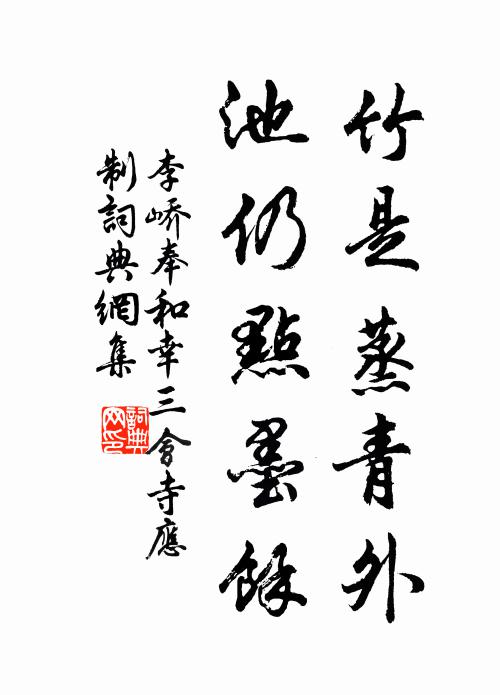 竹是蒸青外
池仍點墨餘
李嶠奉和幸三會寺應
制詞典網集
詞典
网印